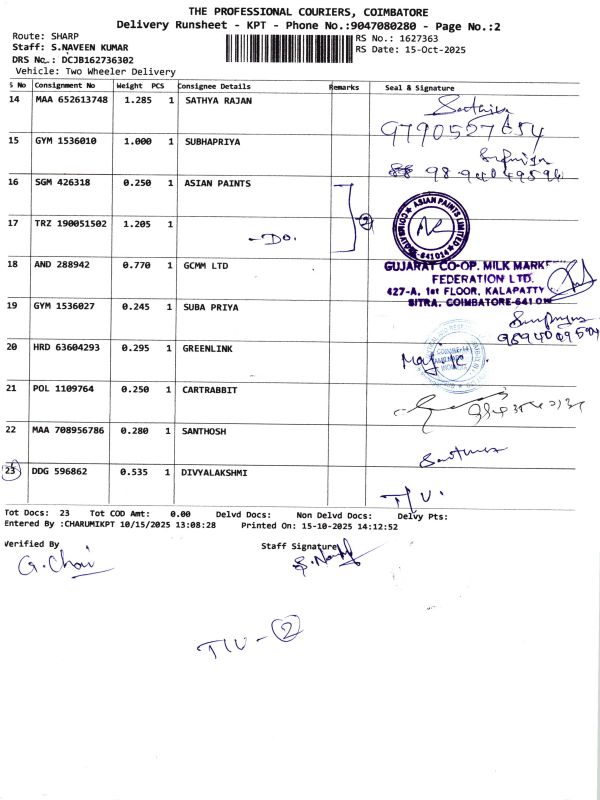 THE PROFESSIONAL COURIERS, COIMBATORE
Delivery Runsheet - KPT - Phone No.:9047080280 - Page No.:2
Route: SHARP
Staff: S.NAVEEN KUMAR
DRS No.: DCJB162736302
Vehicle: Two Wheeler Delivery
RS No.: 1627363
RS Date: 15-Oct-2025
S No Consignment No Weight PCS Consignee Details Remarks Seal & Signature
14 MAA 652613748 1.285 1 SATHYA RAJAN
15 GYM 1536010 1.000 1 SUBHAPRIYA
16 SGM 426318 0.250 1 ASIAN PAINTS
ASIAN PAINTS LIMITED
641014
17 TRZ 190051502 1.205 1 -DO. 2
18 AND 288942 0.770 1 GCMM LTD
GUJARAT CO-OP. MILK MARKE
FEDERATION LTD.
427-A, 1st FLOOR, KALAPATTY
SITRA. COIMBATORE-641 014
19 GYM 1536027 0.245 1 SUBA PRIYA
20 HRD 63604293 0.295 1 GREENLINK
21 POL 1109764 0.250 1 CARTRABBIT
22 MAA 708956786 0.280 1 SANTHOSH
23 DDG 596862 0.535 1 DIVYALAKSHMI T/U.
Tot Docs: 23 Tot COD Amt: 0.00 Delvd Docs: Non Delvd Docs: Delvy Pts:
Entered By :CHARUMIKPT 10/15/2025 13:08:28 Printed On: 15-10-2025 14:12:52
Verified By Staff Signature
T/U - 2